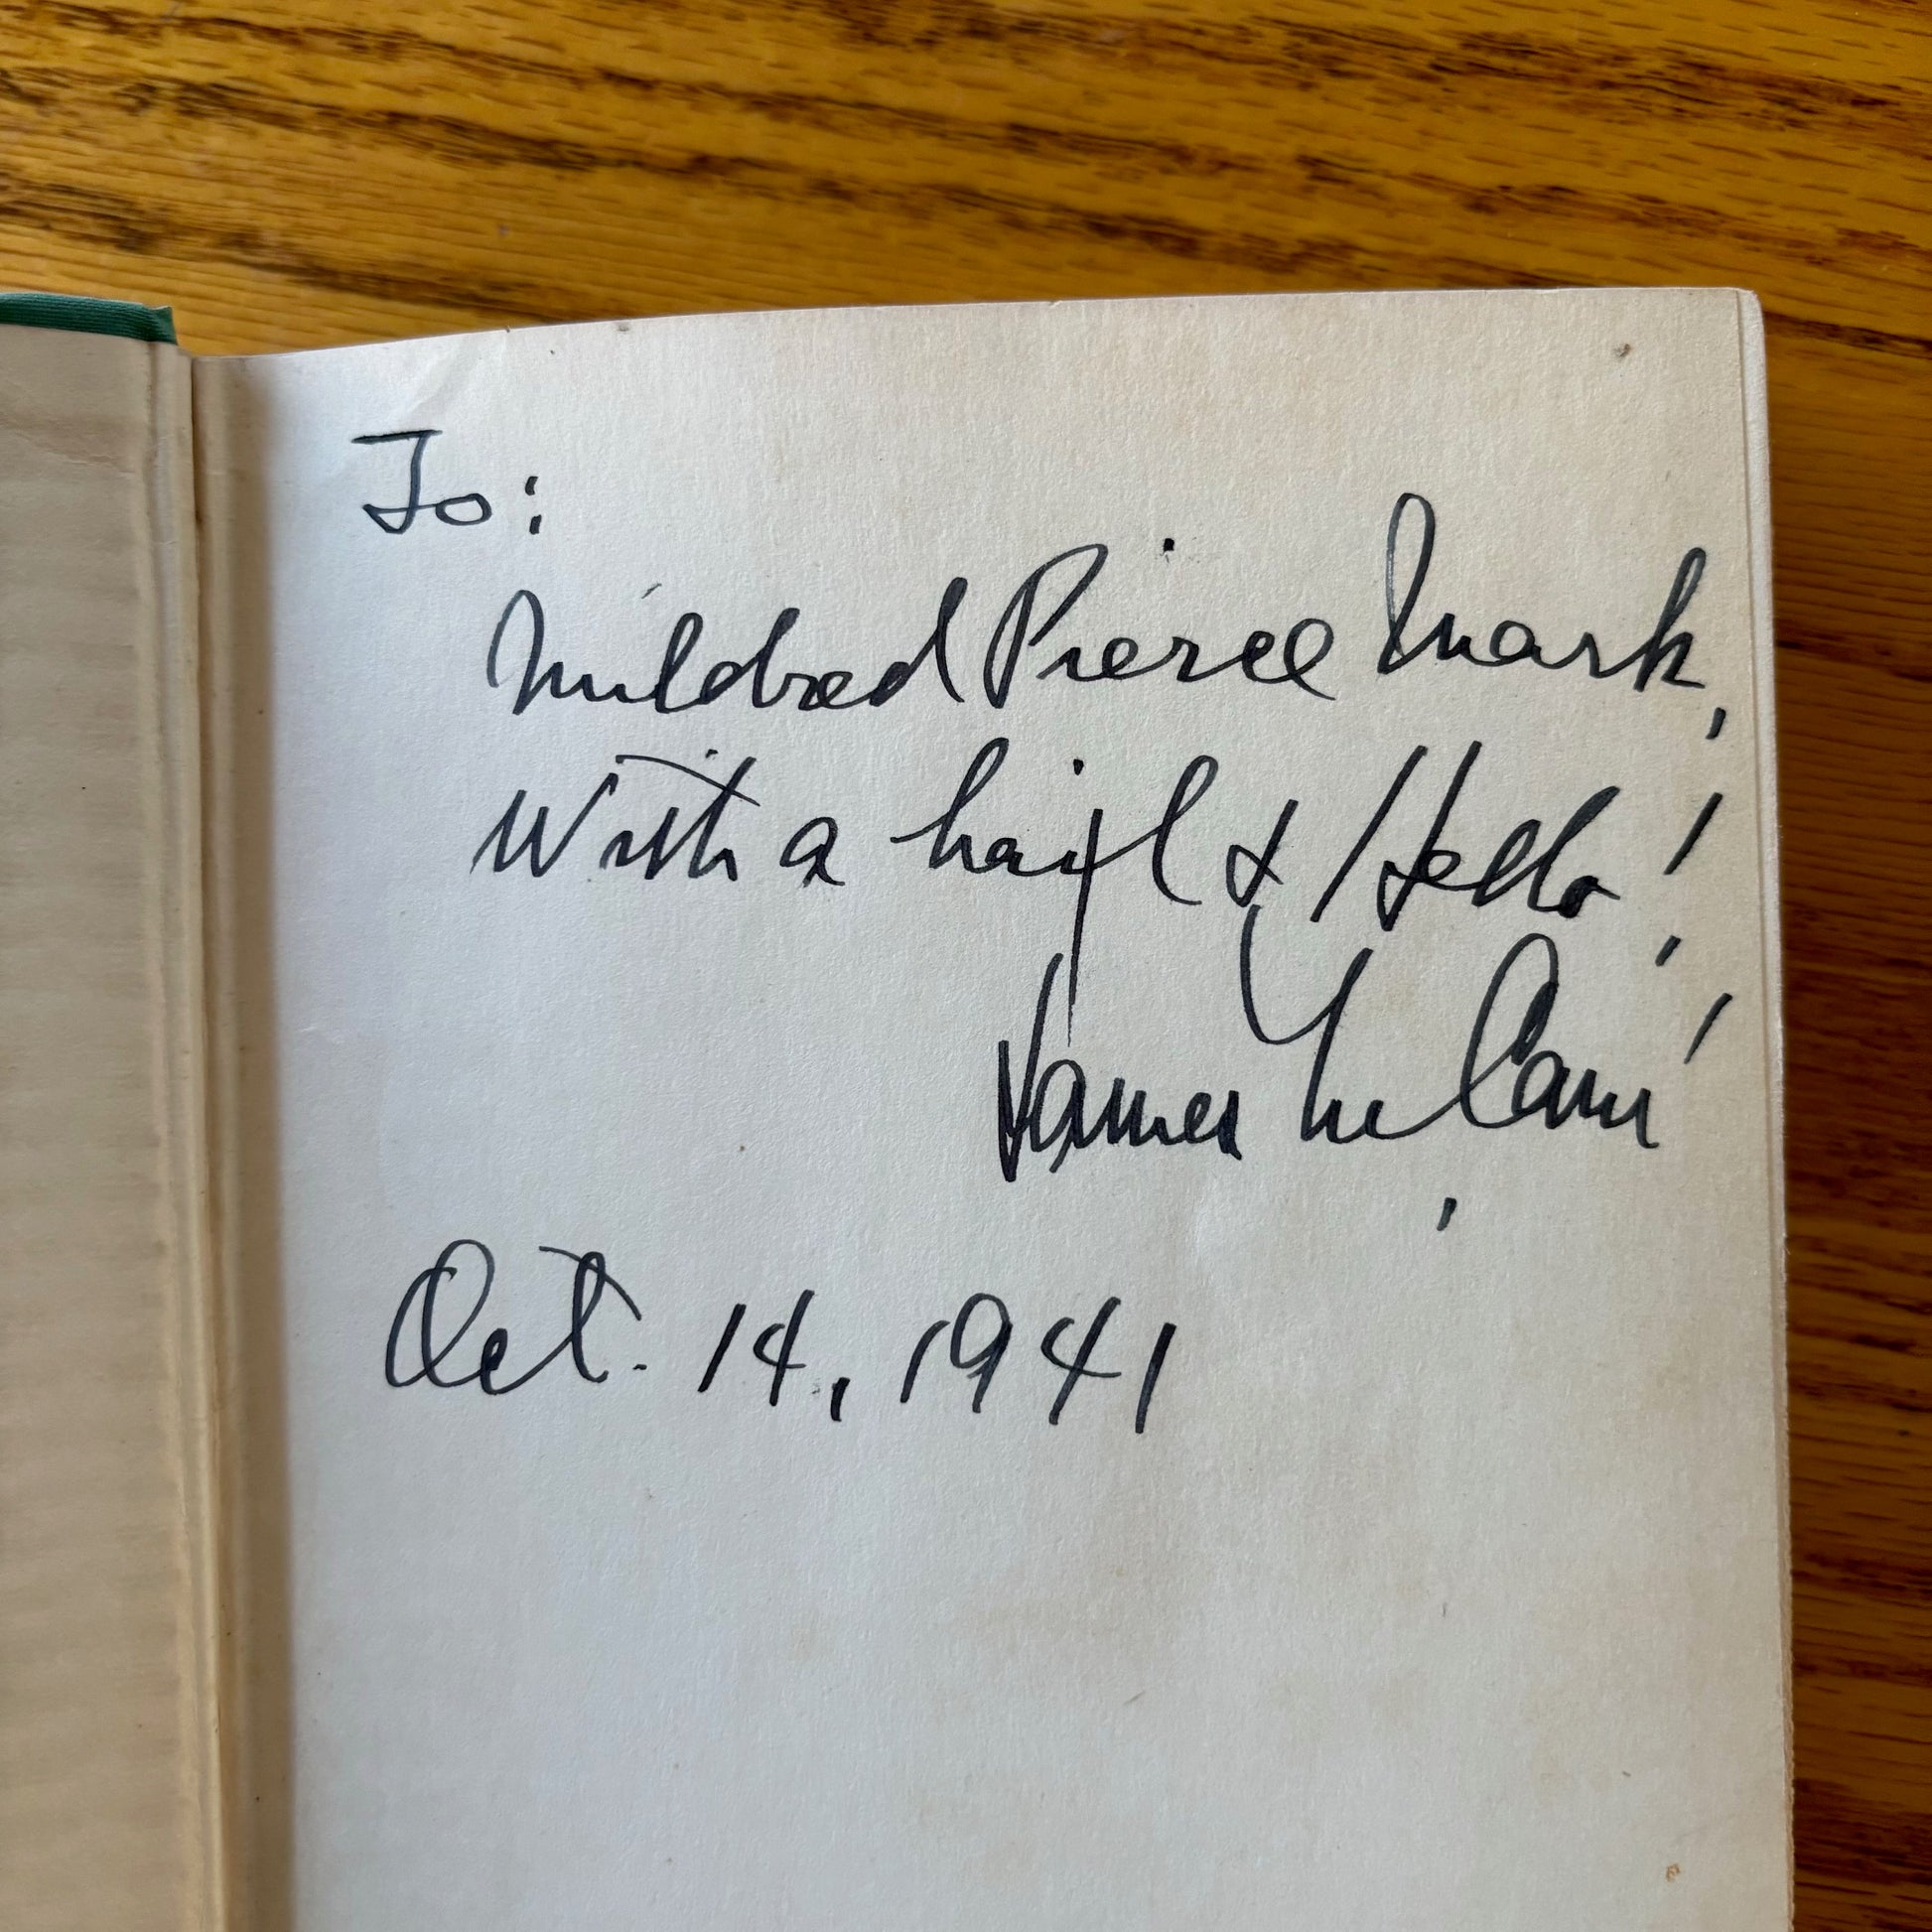 To:
Mildred Pierce Mark,
With a hail & Hello!
James M. Cain
Oct. 14, 1941